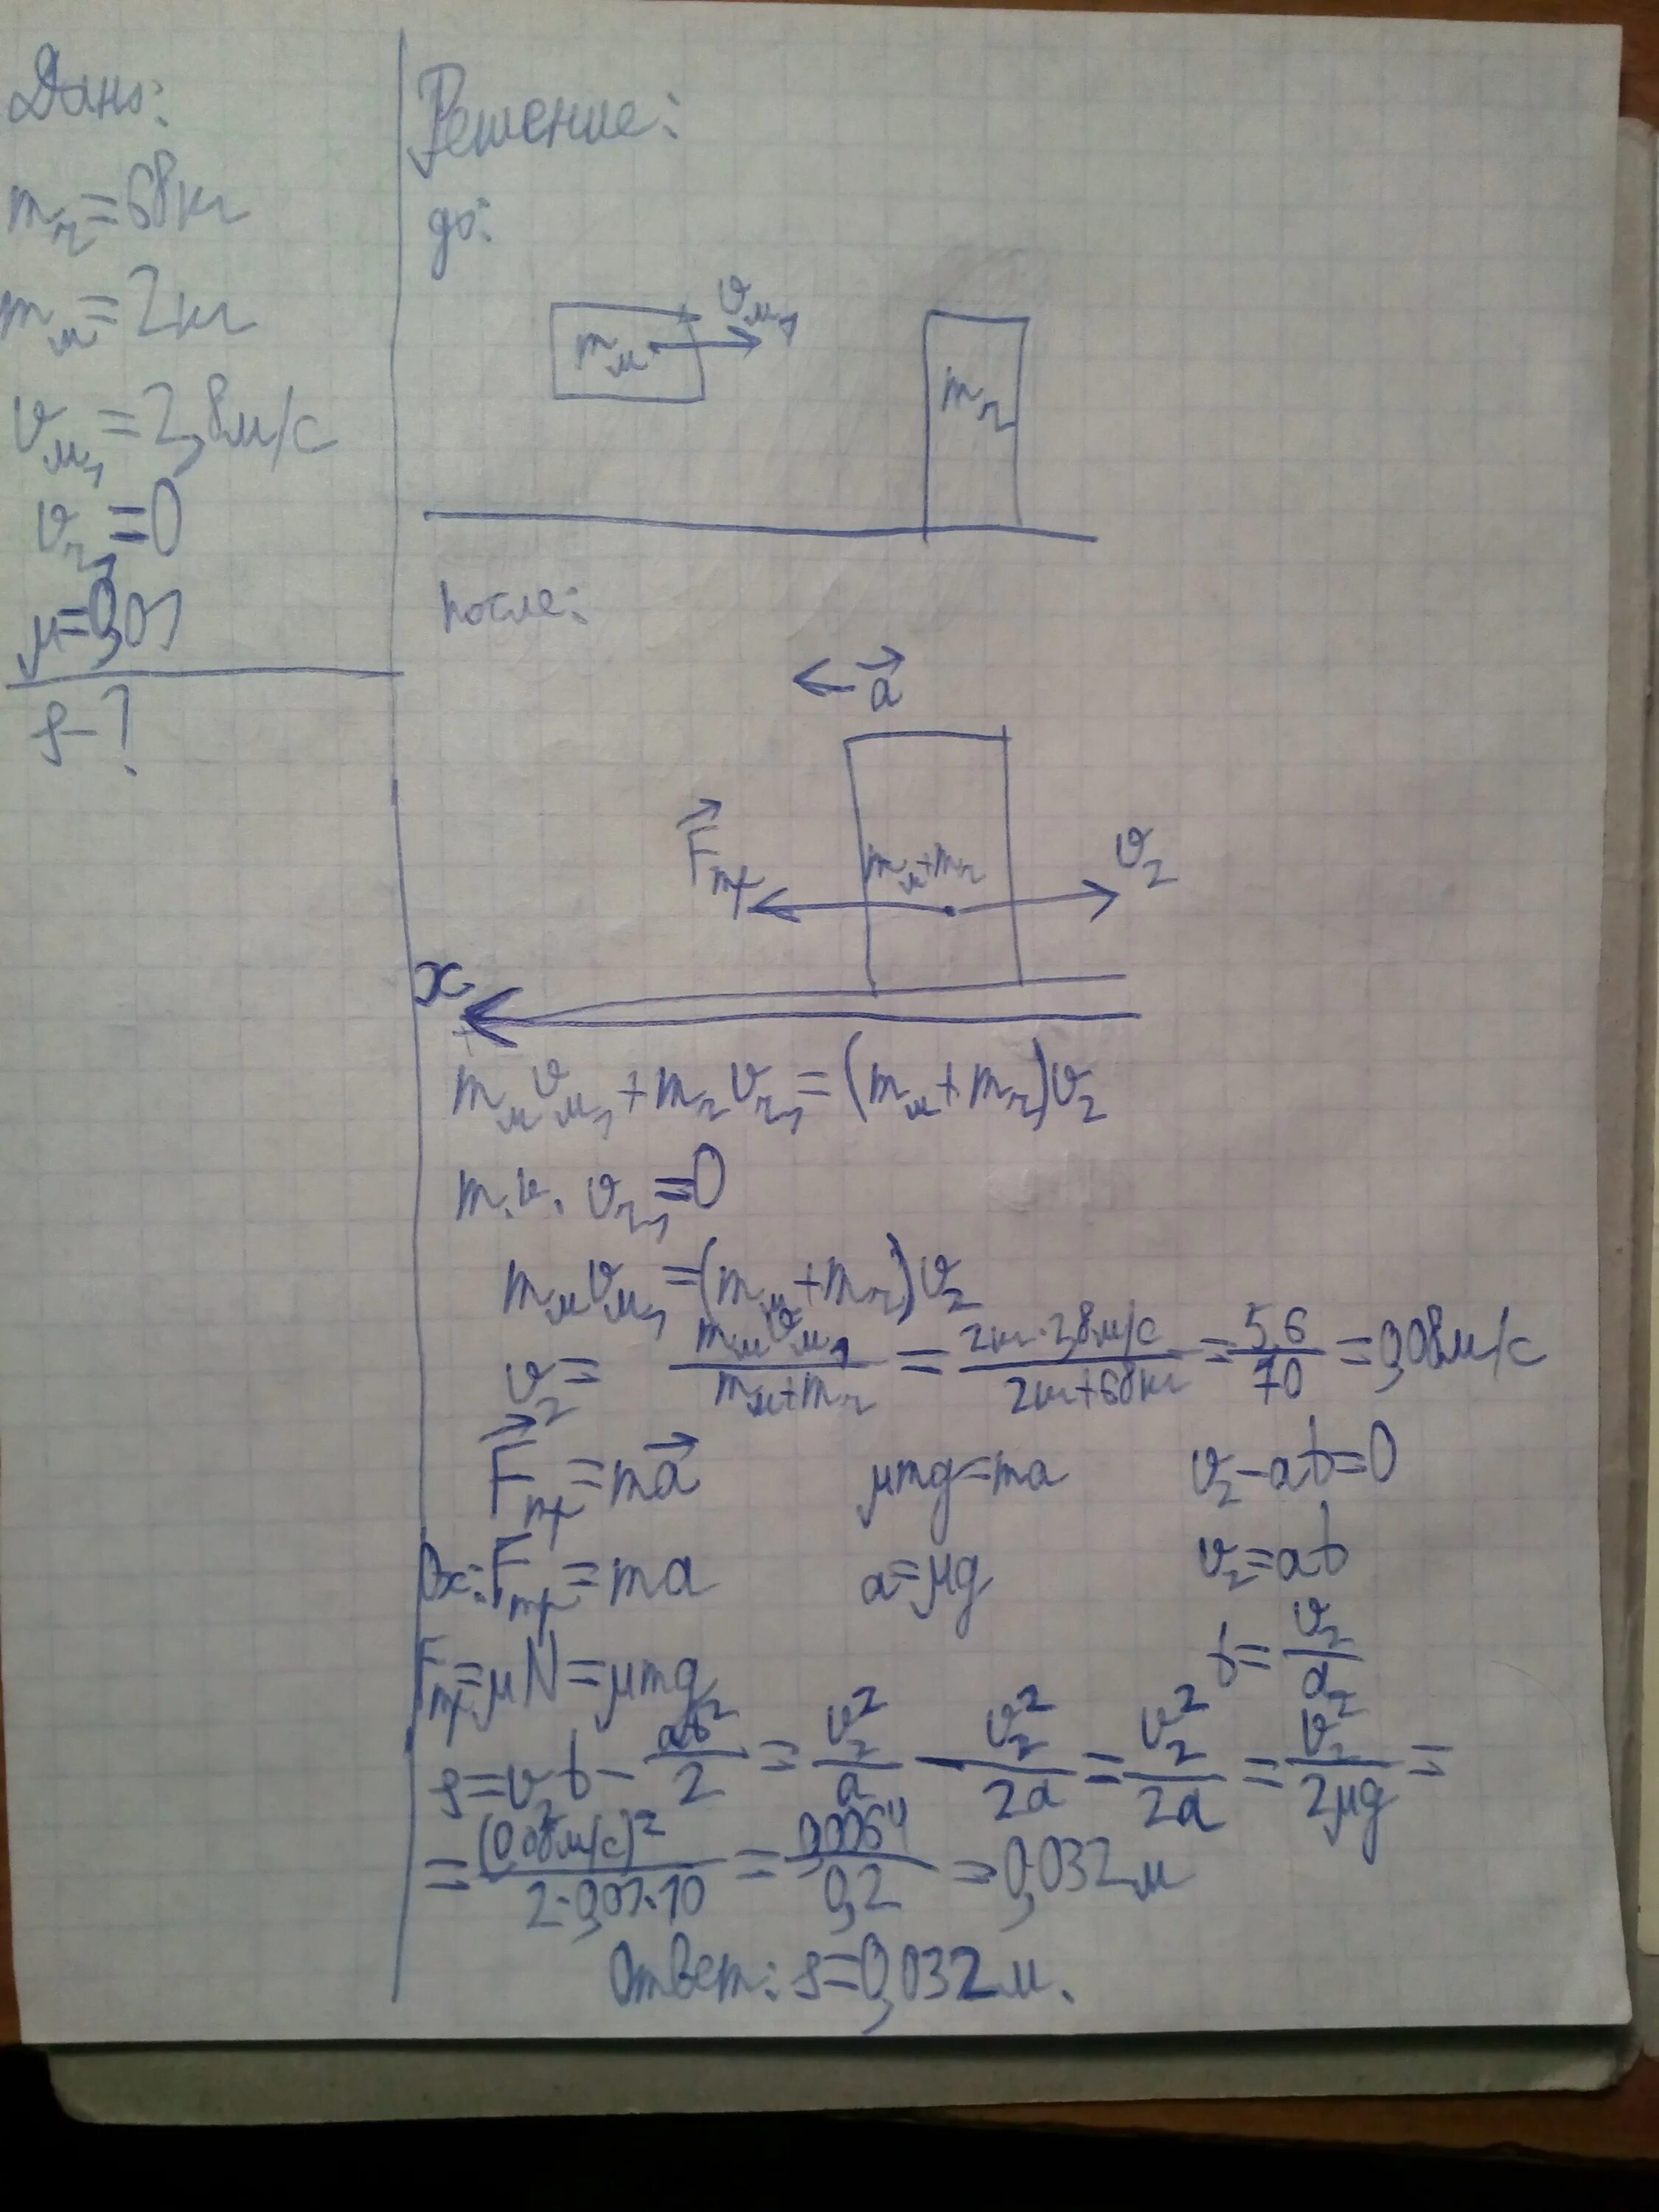 Дано:
m_ч=68кг
m_м=2кг
v_м₁=2,8м/с
v_ч₁=0
μ=0,01
s-?
Решение:
до:
v_м₁
m_м
m_ч
после:
a
F_тр
m_м+m_ч
v₂
x
m_м v_м₁+m_ч v_ч₁=(m_м+m_ч)v₂
т.к. v_ч₁=0
m_м v_м₁=(m_м+m_ч)v₂
v₂=m_м v_м₁/(m_м+m_ч)=2кг·2,8м/с/(2кг+68кг)=5,6/70=0,08м/с
F_тр=ma μmg=ma v₂-at=0
Ox: F_тр=ma a=μg v₂=at
F_тр=μN=μmg t=v₂/a
s=v₂t-at²/2=v₂²/a-v₂²/2a=v₂²/2a=v₂²/2μg=
=(0,08м/с)²/2·0,01·10=0,0064/0,2=0,032м
Ответ: s=0,032м.